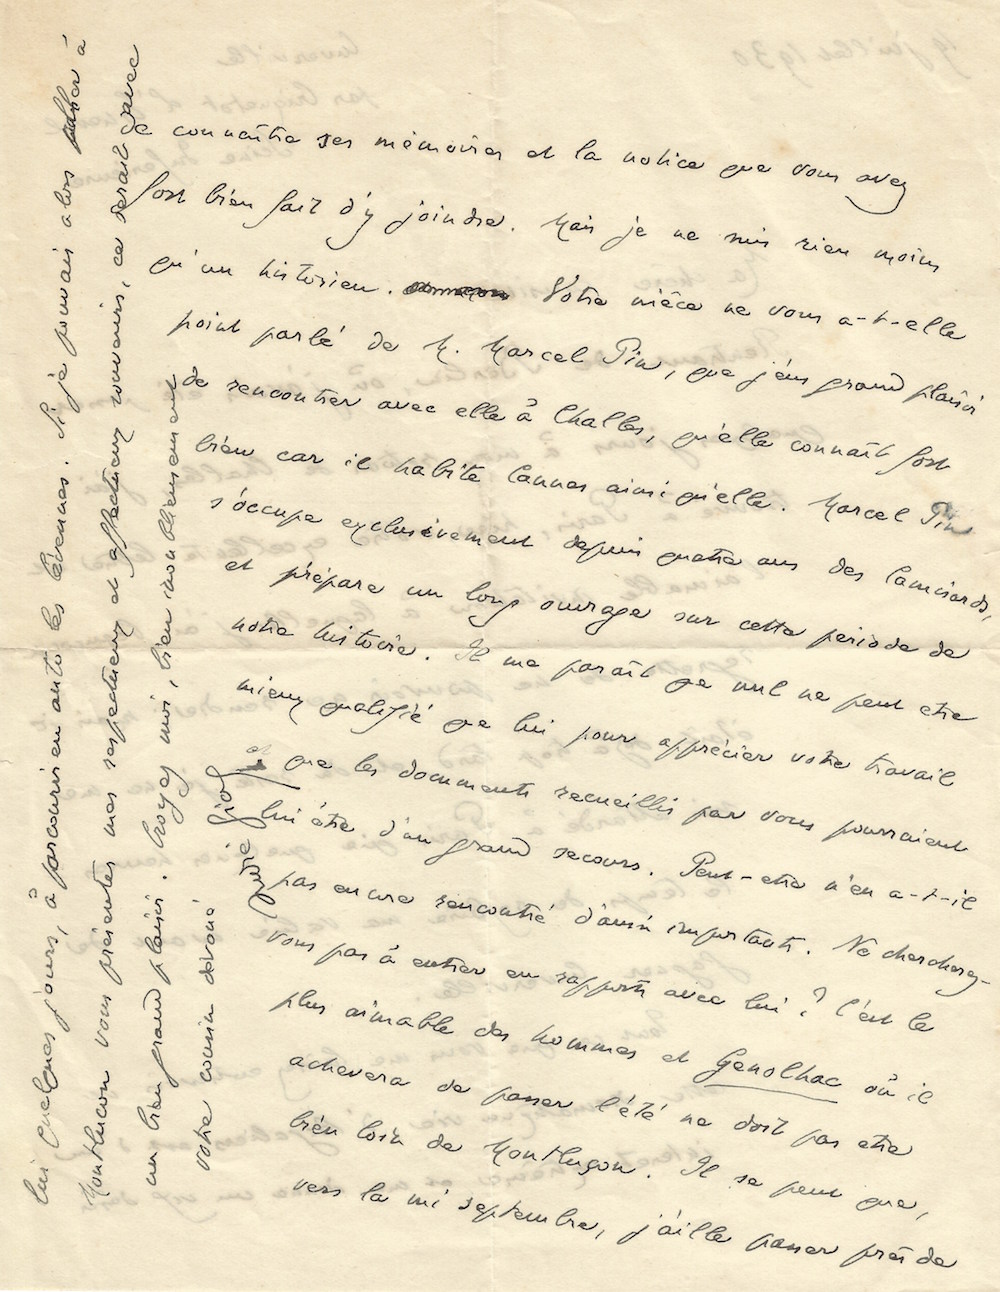 de connaître ses mémoires et la notice que vous avez
fort bien fait d'y joindre. Mais je ne suis rien moins
qu'un historien. Votre nièce ne vous a-t-elle
point parlé de M. Marcel Pin, que j'eus grand plaisir
de rencontrer avec elle à Challes, qu'elle connaît fort
bien car il habite Cannes ainsi qu'elle. Marcel Pin
s'occupe exclusivement depuis quatre ans des Camisards,
et prépare un long ouvrage sur cette période de
notre histoire. Il me paraît que nul ne peut être
mieux qualifié que lui pour apprécier votre travail
et que les documents recueillis par vous pourraient
lui être d'un grand secours. Peut-être n'en a-t-il
pas encore rencontré d'aussi importants. Ne cherchez-
vous pas à entrer en rapports avec lui? C'est le
plus aimable des hommes et Genolhac où il
achevera de passer l'été ne doit pas être
bien loin de Montluçon. Il se peut que,
vers la mi septembre, j'aille passer près de
lui quelques jours, à parcourir en auto les Cévennes. Si je pouvais alors aller à
Montlucon vous présenter mes respectueux et affectueux souvenirs, ce serait avec
un bien grand plaisir. Croyez moi, bien inoublieusement
votre cousin dévoué
André Gide
19 juillet 1930
Cuverville